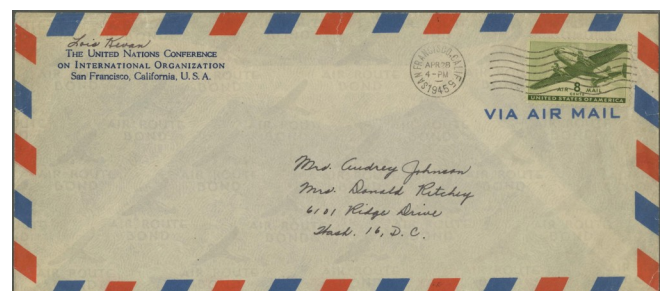 Lois Kevan
THE UNITED NATIONS CONFERENCE
ON INTERNATIONAL ORGANIZATION
San Francisco, California, U. S. A.
SAN FRANCISCO, CALIF.
APR 28
4 - PM
1945
AIR MAIL
8
CENTS
UNITED STATES OF AMERICA
VIA AIR MAIL
Mrs. Audrey Johnson
Mrs. Donald Ritchey
6101 Ridge Drive
Wash. 16, D. C.
AIR ROUTE
BOND